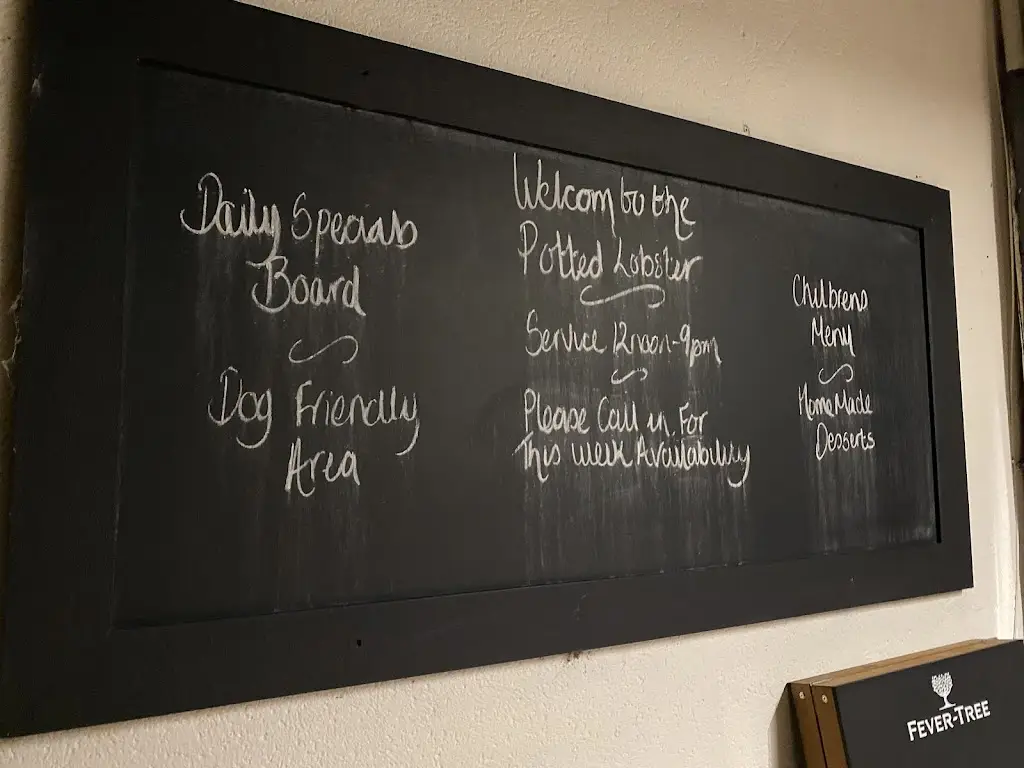 Daily Specials
Board
Dog Friendly
Area
Welcom to the
Potted Lobster
Service 12noon-9pm
Please Call in For
This week Availability
Childrens
Menu
HomeMade
Desserts
FEVER-TREE